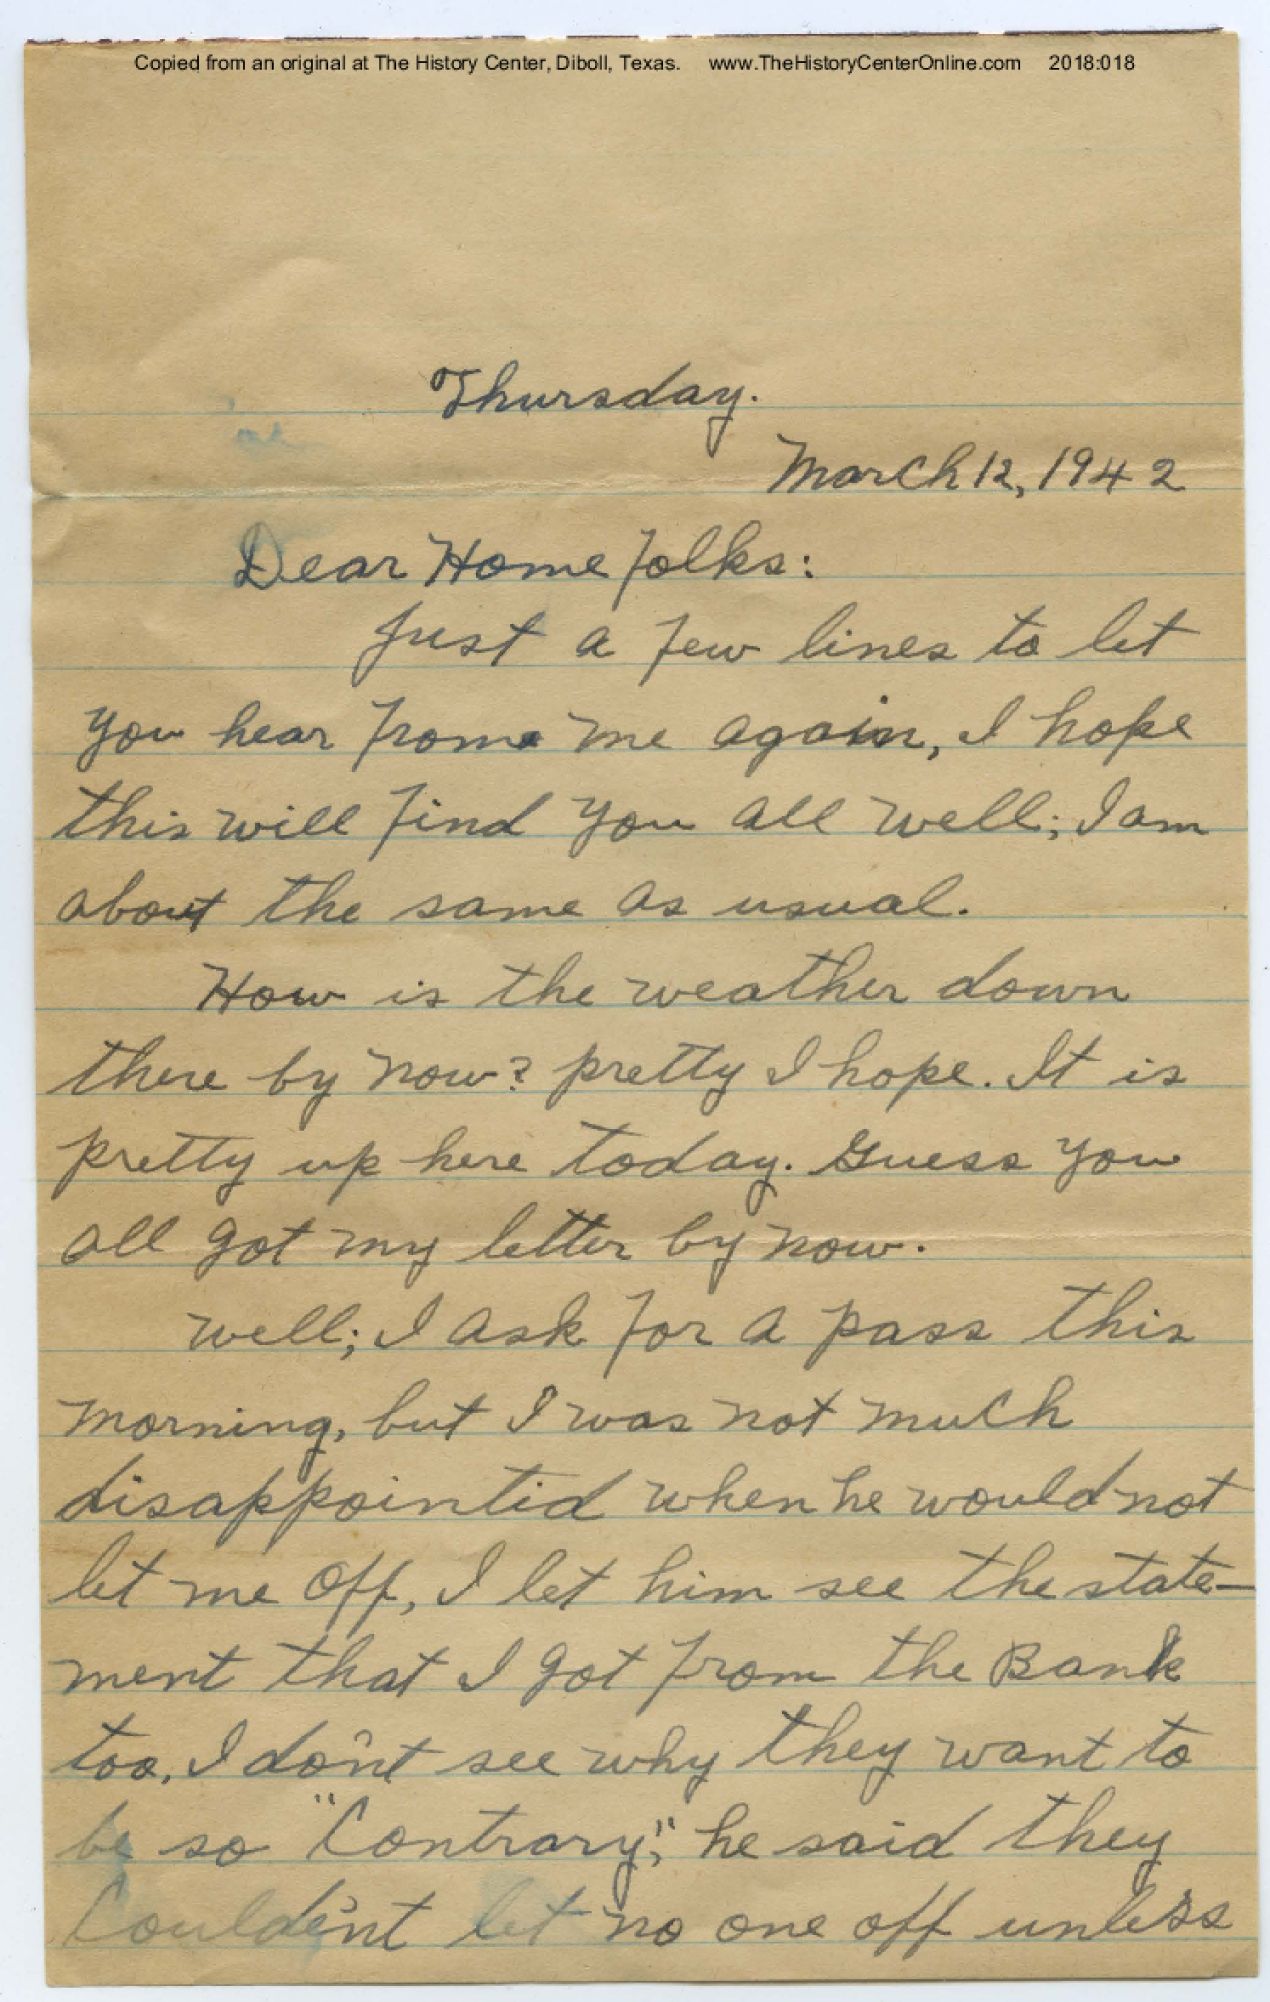 Copied from an original at The History Center, Diboll, Texas. www.TheHistoryCenterOnline.com 2018:018
Thursday.
March 12, 1942
Dear Home folks:
Just a few lines to let
you hear from me again, I hope
this will find you all well; I am
about the same as usual.
How is the weather down
there by now? pretty I hope. It is
pretty up here today. Guess you
all got my letter by now.
well; I ask for a pass this
morning, but I was not much
disappointid when he would not
let me off, I let him see the state-
ment that I got from the Bank
too, I don't see why they want to
be so "Contrary," he said they
Coulden't let no one off unless